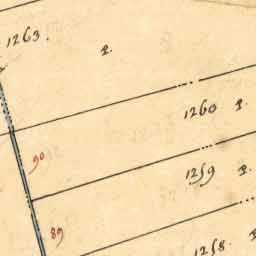 1263. p.
1260 p.
90
1259 p.
89
1258. p.